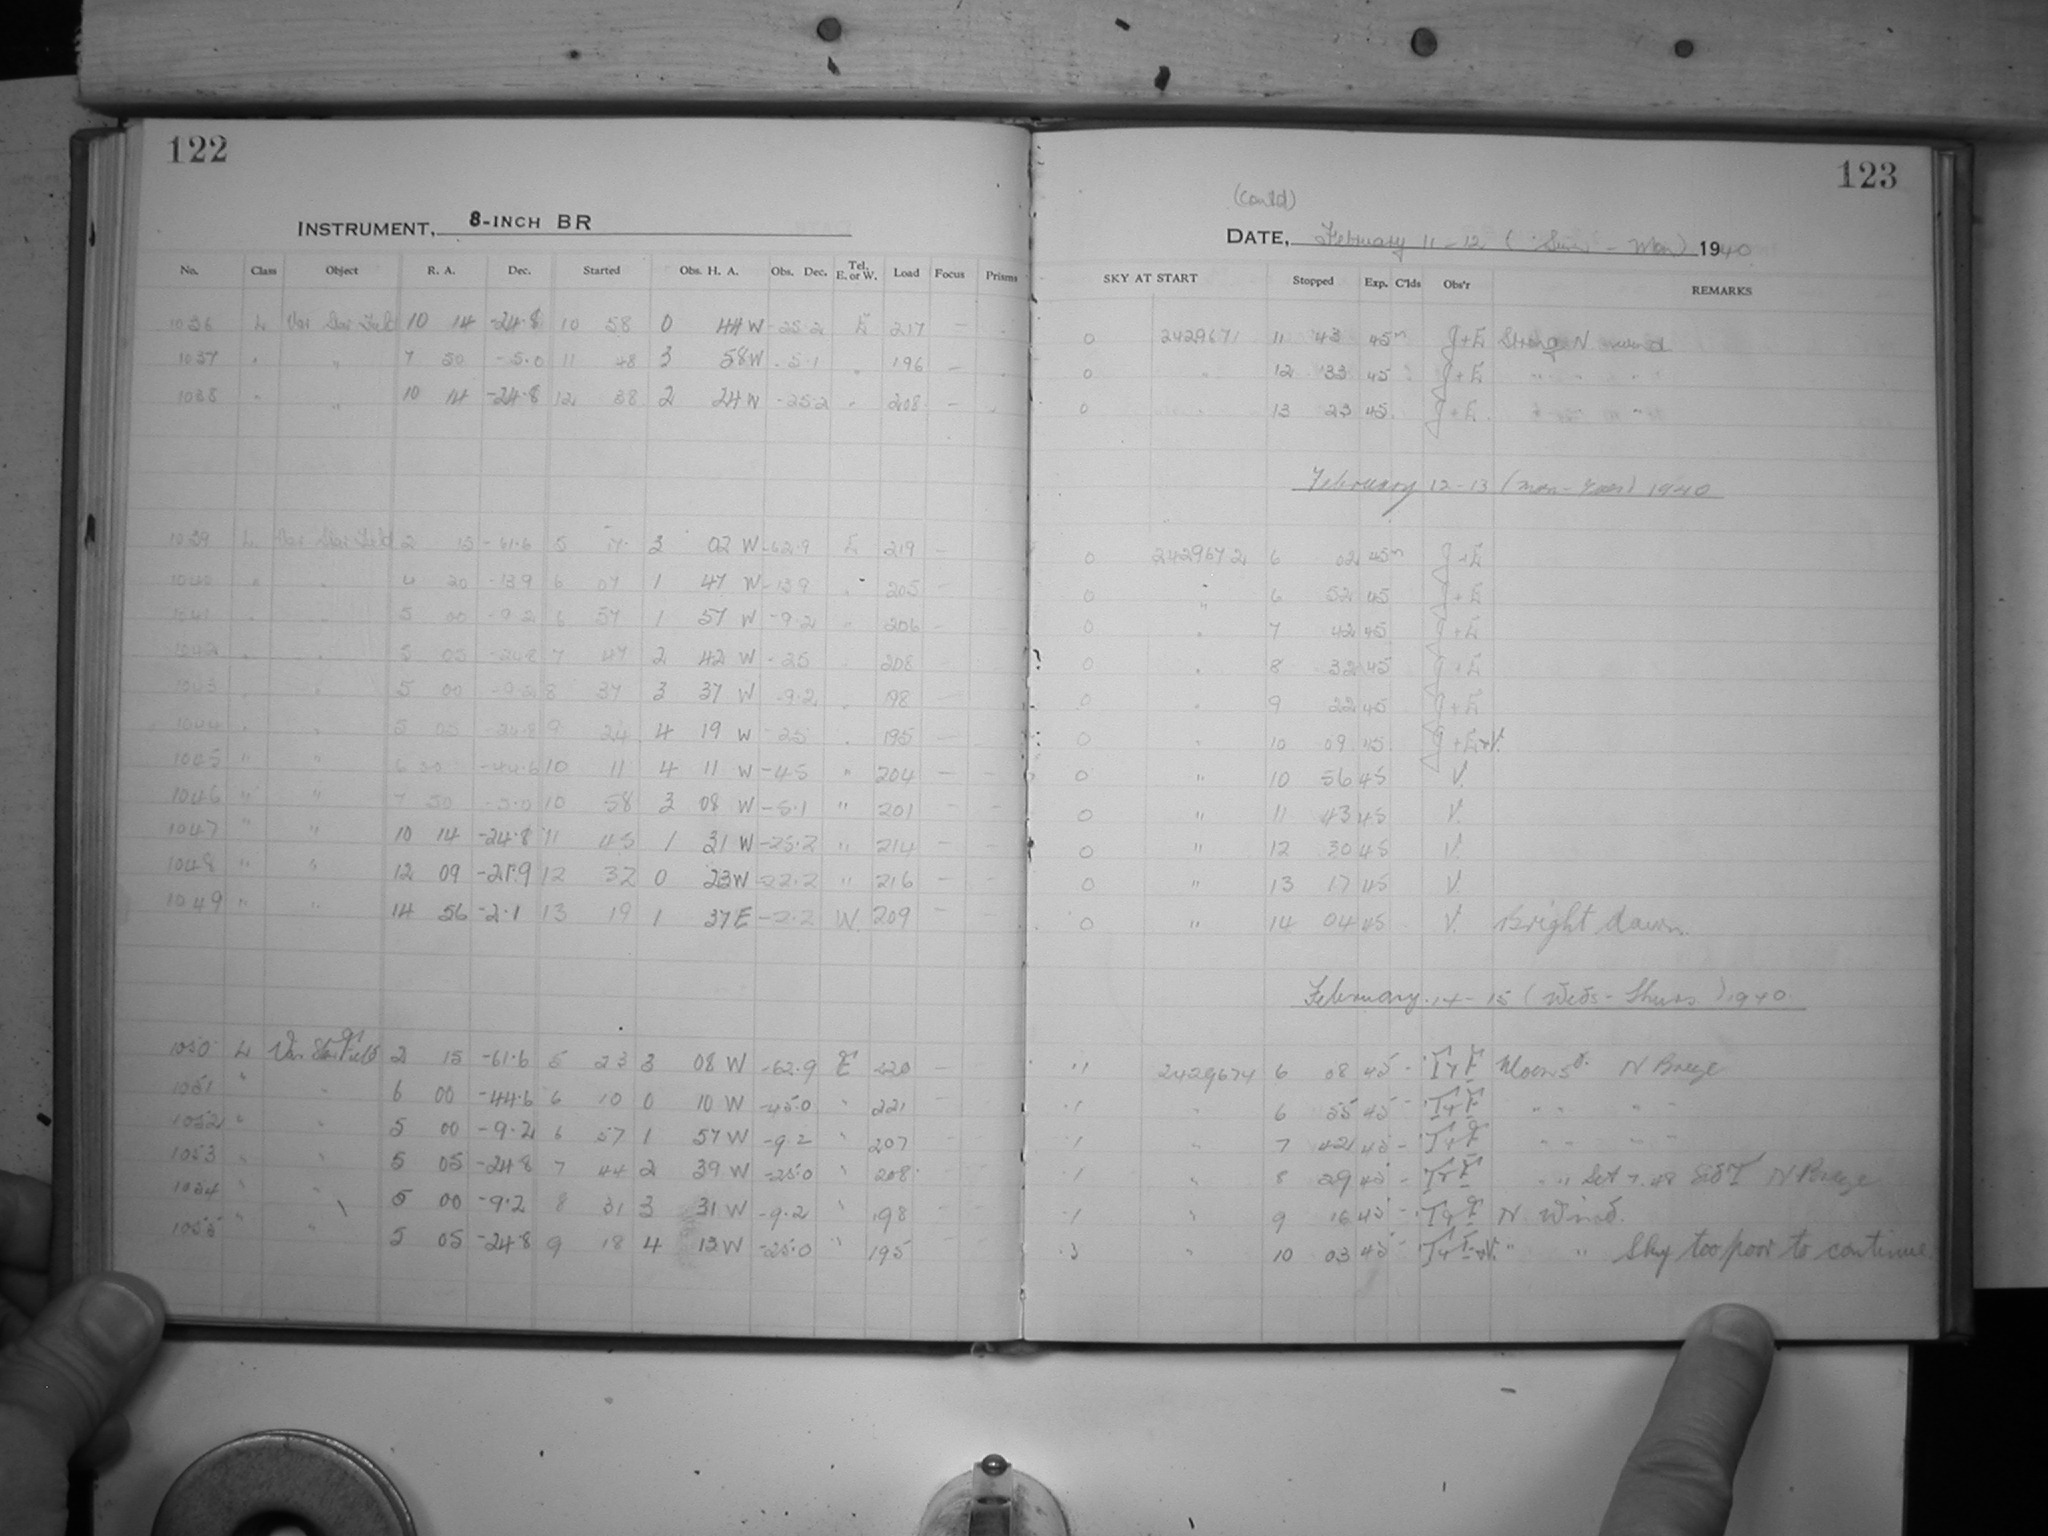 122
INSTRUMENT, 8-INCH BR
No. Class Object R. A. Dec. Started Obs. H. A. Obs. Dec. Tel. E. or W. Load Focus Prisms
1036 L Var Star Field 10 14 -24.8 10 58 0 44 W -25.2 E 217 -
1037 " " 7 50 -5.0 11 48 3 58 W -5.1 " 196 -
1038 " " 10 14 -24.8 12 38 2 24 W -25.2 " 208 -
1039 L Var Star Field 2 15 -61.6 5 17 3 02 W -62.9 E 219 -
1040 " " 4 20 -13.9 6 07 1 47 W -13.9 " 205 -
1041 " " 5 00 -9.2 6 57 1 57 W -9.2 " 206 -
1042 " " 5 05 -24.8 7 47 2 42 W -25 " 208 -
1043 " " 5 00 -9.2 8 37 3 37 W -9.2 " 198 -
1044 " " 5 05 -24.8 9 24 4 19 W -25 " 195 -
1045 " " 6 00 -44.6 10 11 4 11 W -45 " 204 - -
1046 " " 7 50 -5.0 10 58 3 08 W -5.1 " 201 - -
1047 " " 10 14 -24.8 11 45 1 31 W -25.2 " 214 - -
1048 " " 12 09 -21.9 12 32 0 23 W -22.2 " 216 - -
1049 " " 14 56 -2.1 13 19 1 37 E -2.2 W 209 - -
1050 L Var Star Field 2 15 -61.6 5 23 3 08 W -62.9 E 220 -
1051 " " 6 00 -44.6 6 10 0 10 W -45.0 " 221 -
1052 " " 5 00 -9.2 6 57 1 57 W -9.2 " 207 -
1053 " " 5 05 -24.8 7 44 2 39 W -25.0 " 208 -
1054 " " 5 00 -9.2 8 31 3 31 W -9.2 " 198 -
1055 " " 5 05 -24.8 9 18 4 13 W -25.0 " 195 -
123
(contd)
DATE, February 11-12 (Sun - Mon) 1940
SKY AT START Stopped Exp. C'lds Obs'r REMARKS
0 2429671 11 43 45m J+E Strong N wind
0 " 12 33 45 J+E " " "
0 " 13 23 45 J+E " " "
February 12-13 (Mon-Tues) 1940
0 2429672 6 02 45m J+E
0 " 6 52 45 J+E
0 " 7 42 45 J+E
0 " 8 32 45 J+E
0 " 9 22 45 J+E
0 " 10 09 45 J+E+V.
0 " 10 56 45 V.
0 " 11 43 45 V.
0 " 12 30 45 V.
0 " 13 17 45 V.
0 " 14 04 45 V. Bright dawn.
February 14-15 (Weds-Thurs) 1940
2429674 6 08 45 - N Breeze
" 6 55 45 - " " " "
" 7 42 45 - " " " "
" 8 29 45 - " " Set 7.48 N Breeze
" 9 16 45 - N. Wind.
" 10 03 45 " " Sky too poor to continue